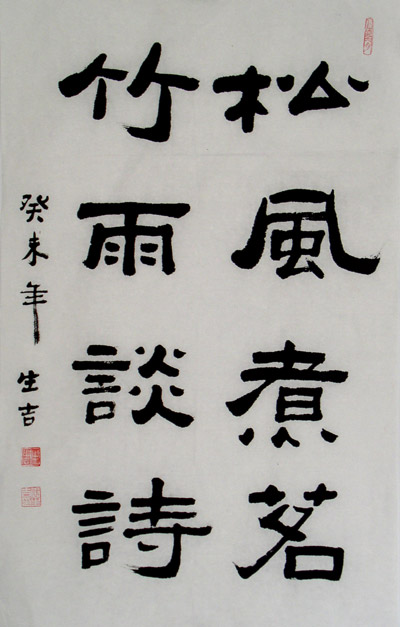 松風煮茗
竹雨談詩
癸未年 生吉